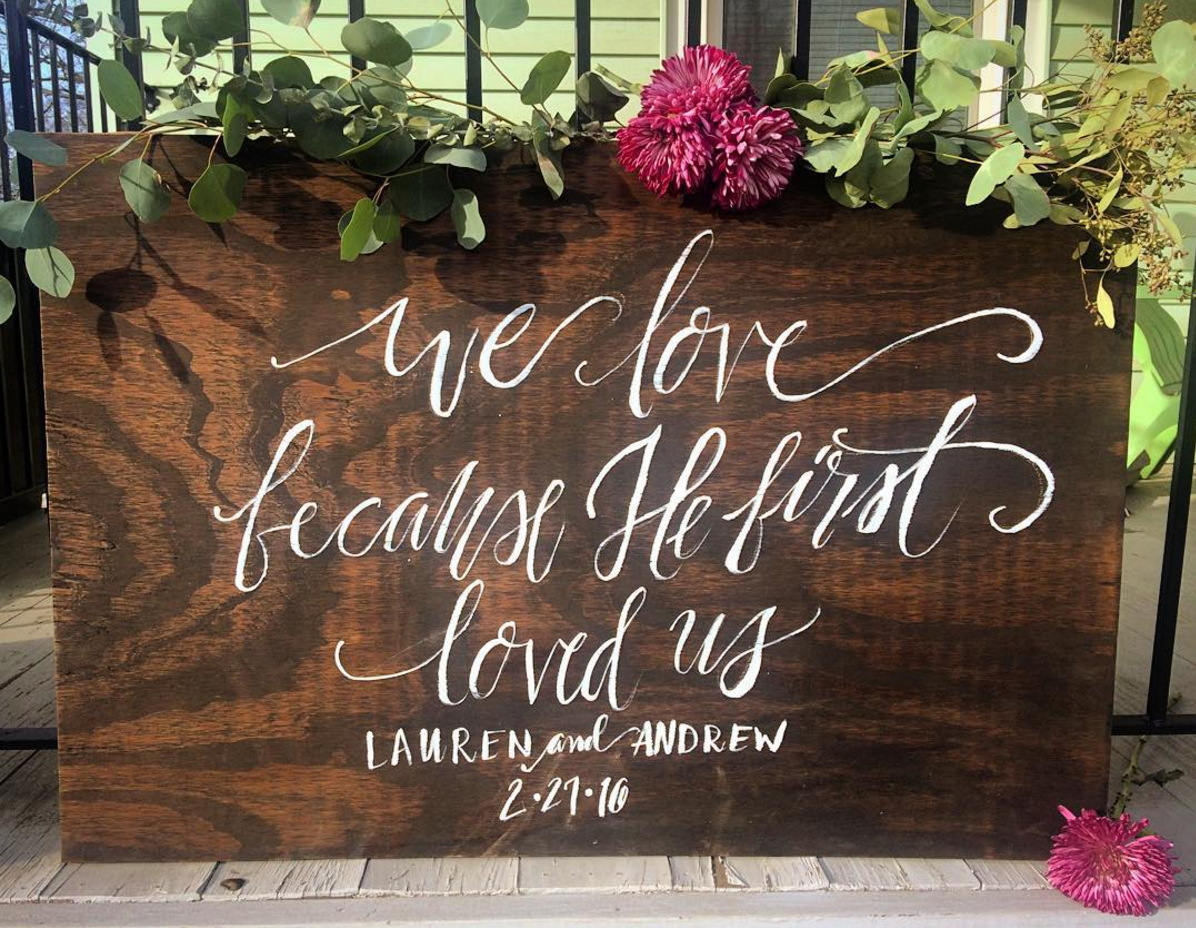 we love
because He first
loved us
LAUREN and ANDREW
2•27•16